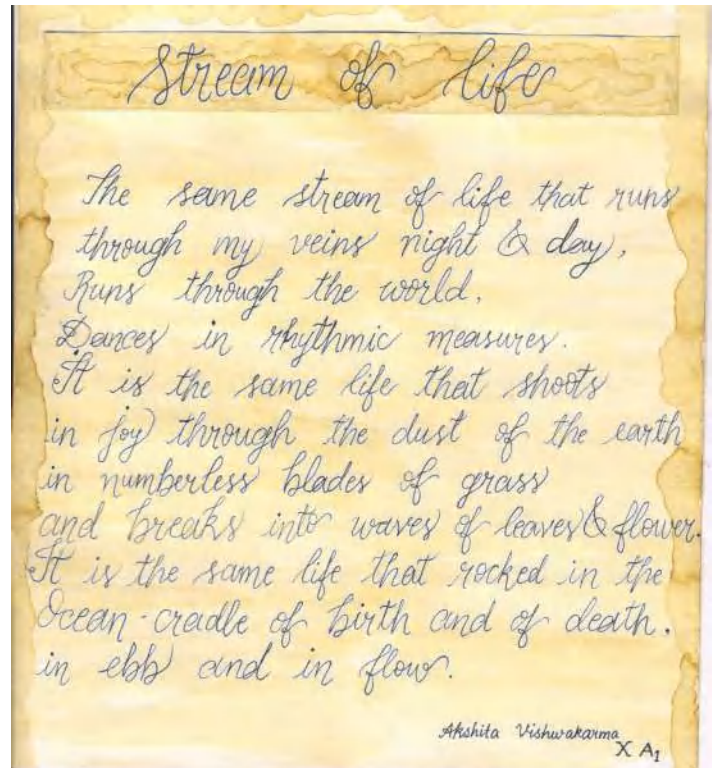 Stream of life
The same stream of life that runs
through my veins night & day,
Runs through the world,
Dances in rhythmic measures.
It is the same life that shoots
in joy through the dust of the earth
in numberless blades of grass
and breaks into waves of leaves & flower.
It is the same life that rocked in the
Ocean-cradle of birth and of death.
in ebb and in flow.
Akshita Vishwakarma
X A1